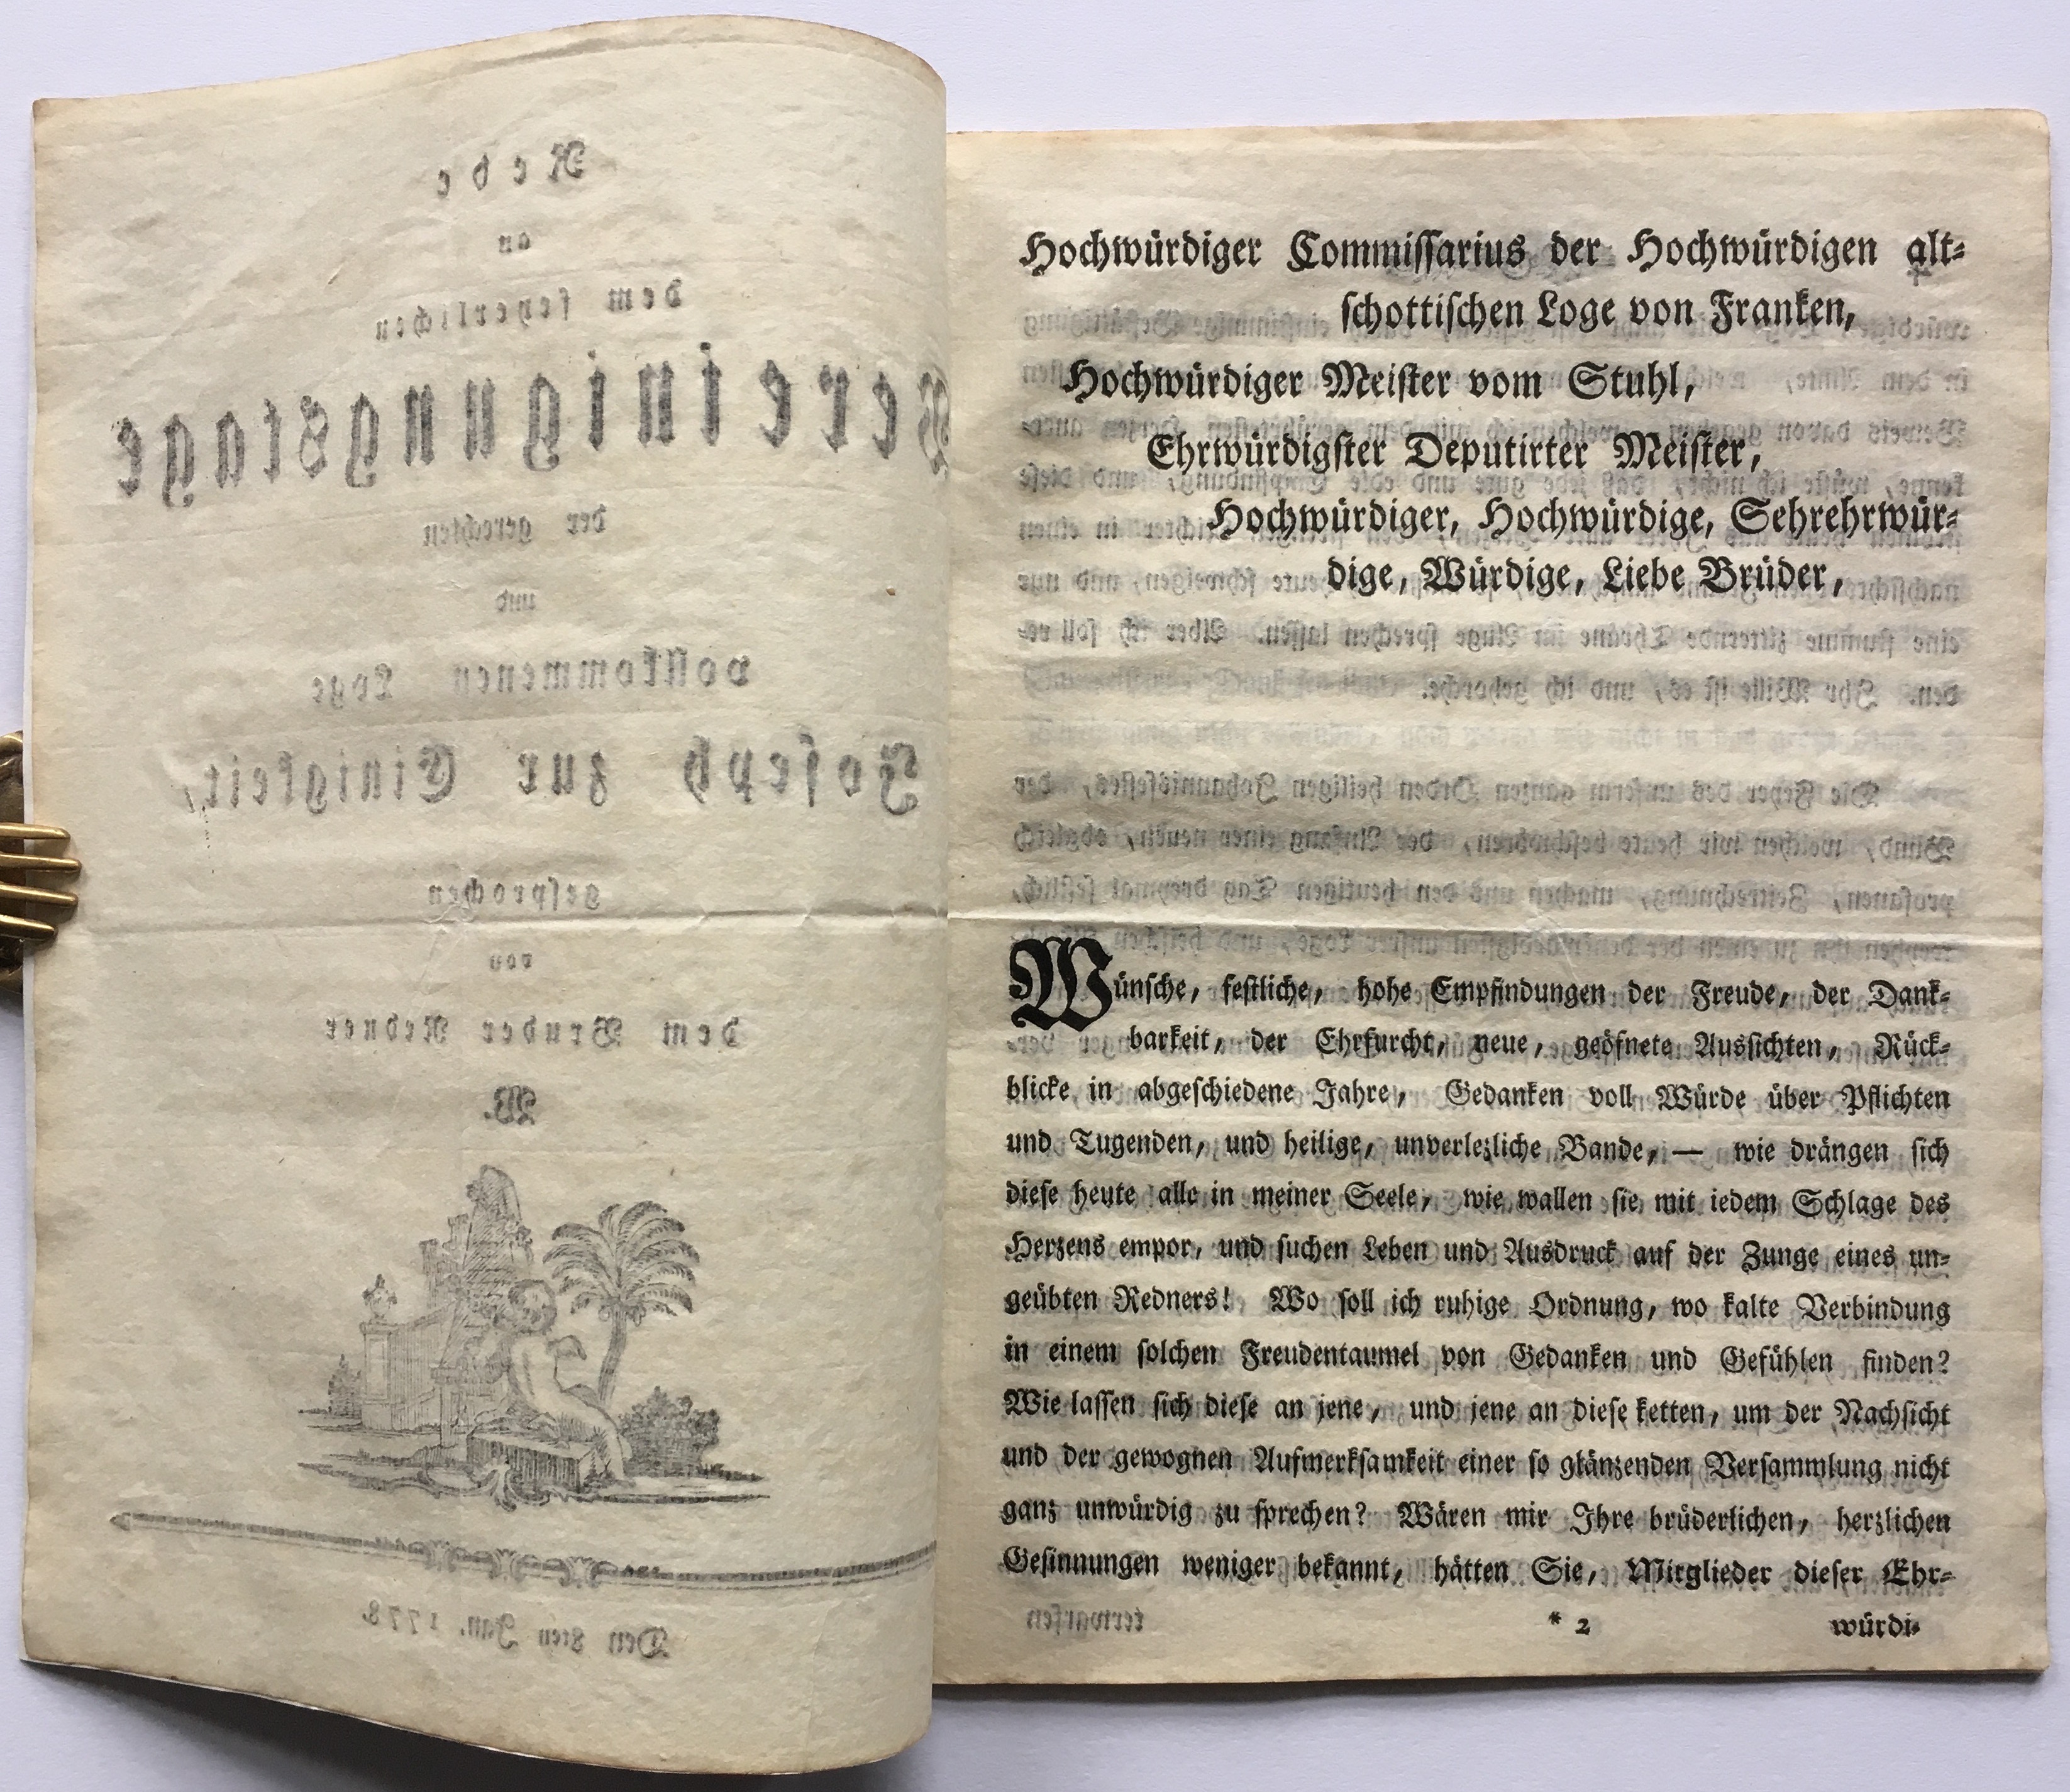 Rede
an
dem feyerlichen
Vereinigungstage
der gerechten
und
vollkommenen Loge
Joseph zur Einigkeit,
gesprochen
von
dem Bruder Redner
W.
Den 8ten Jan. 1778.
Hochwürdiger Commissarius der Hochwürdigen alt⸗
schottischen Loge von Franken,
Hochwürdiger Meister vom Stuhl,
Ehrwürdigster Deputirter Meister,
Hochwürdiger, Hochwürdige, Sehrehrwür⸗
dige, Würdige, Liebe Brüder,
Wünsche, festliche, hohe Empfindungen der Freude, der Dank⸗
barkeit, der Ehrfurcht, neue, geöfnete Aussichten, Rück⸗
blicke in abgeschiedene Jahre, Gedanken voll Würde über Pflichten
und Tugenden, und heilige, unverlezliche Bande, — wie drängen sich
diese heute alle in meiner Seele, wie wallen sie mit iedem Schlage des
Herzens empor, und suchen Leben und Ausdruck auf der Zunge eines un⸗
geübten Redners! Wo soll ich ruhige Ordnung, wo kalte Verbindung
in einem solchen Freudentaumel von Gedanken und Gefühlen finden?
Wie lassen sich diese an jene, und jene an diese ketten, um der Nachsicht
und der gewognen Aufmerksamkeit einer so glänzenden Versammlung nicht
ganz unwürdig zu sprechen? Wären mir Ihre brüderlichen, herzlichen
Gesinnungen weniger bekannt, hätten Sie, Mitglieder dieser Ehr⸗
* 2 würdi⸗